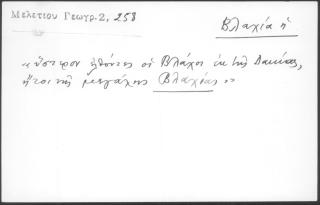 Μελετίου Γεωγρ. 2, 258
Βλαχία ἡ
« ὕστερον ἐλθόντες οἱ Βλάχοι ἐκ τῆς Δακίας,
ἤτοι τῆς μεγάλης Βλαχίας »